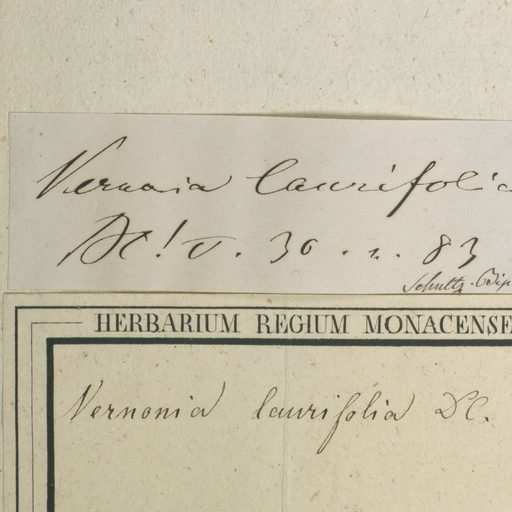 Vernonia laurifolia
DC! v. 30. n. 83
Schultz. Bip
HERBARIUM REGIUM MONACENSE
Vernonia laurifolia DC.